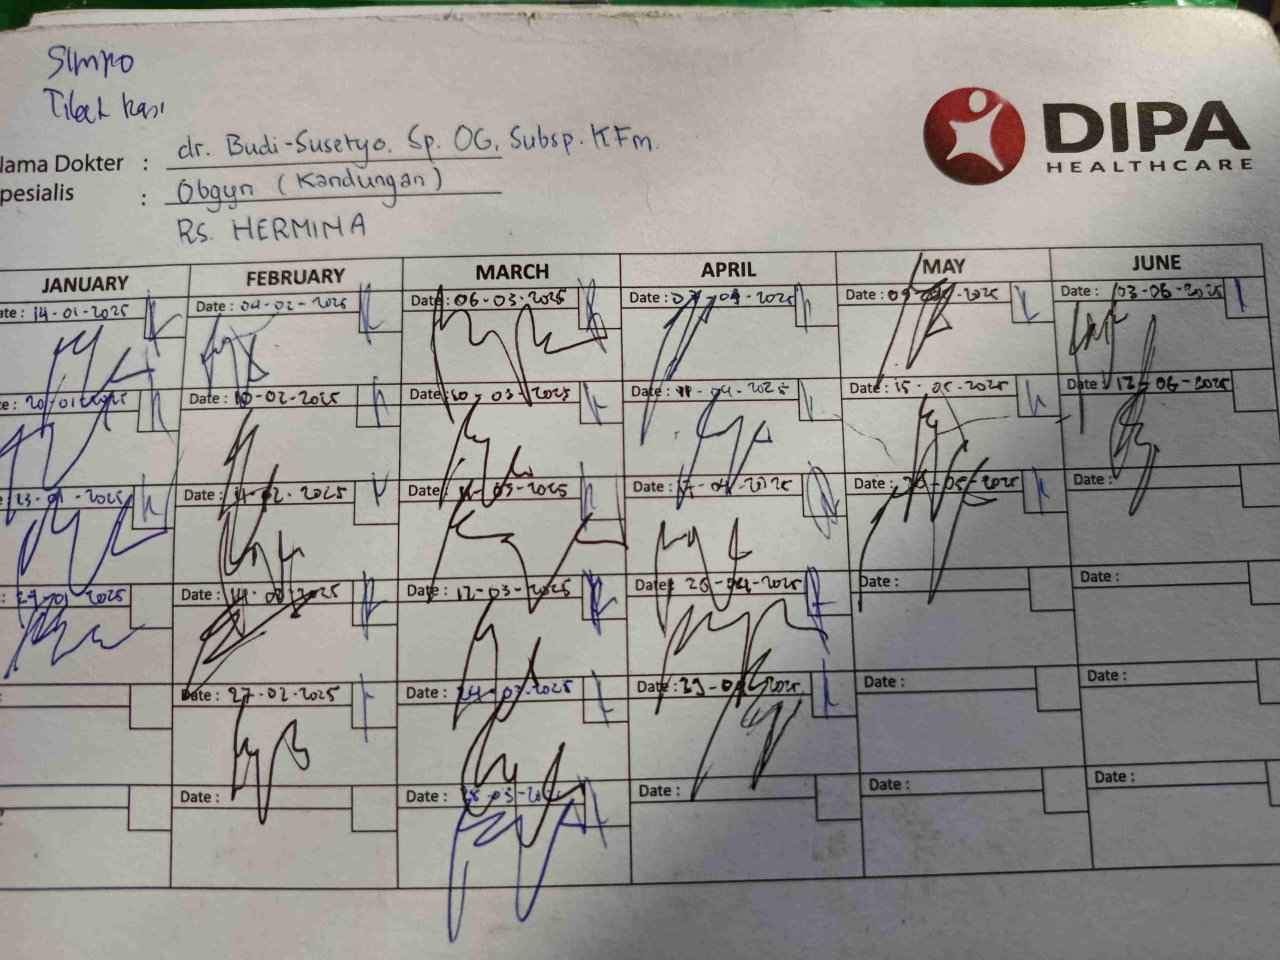 SIMPO
Nama Dokter : dr. Budi-Susetyo. Sp. OG, Subsp. KFm.
Spesialis : Obgyn (Kandungan)
RS. HERMINA
DIPA
HEALTHCARE
JANUARY FEBRUARY MARCH APRIL MAY JUNE
Date : 14-01-2025 Date : 04-02-2025 Date : 06-03-2025 Date : Date : Date : 03-06-2025
Date : 20-01-2025 Date : 10-02-2025 Date : 10-03-2025 Date : 11-04-2025 Date : 15-05-2025 Date : 12-06-2025
Date : 23-01-2025 Date : 14-02-2025 Date : Date : 17-04-2025 Date : 20-05-2025 Date :
Date : 27-01-2025 Date : Date : 17-03-2025 Date : 25-04-2025 Date : Date :
Date : 27-02-2025 Date : 24-03-2025 Date : 29-04-2025 Date : Date :
Date : Date : 28-03-2025 Date : Date : Date :